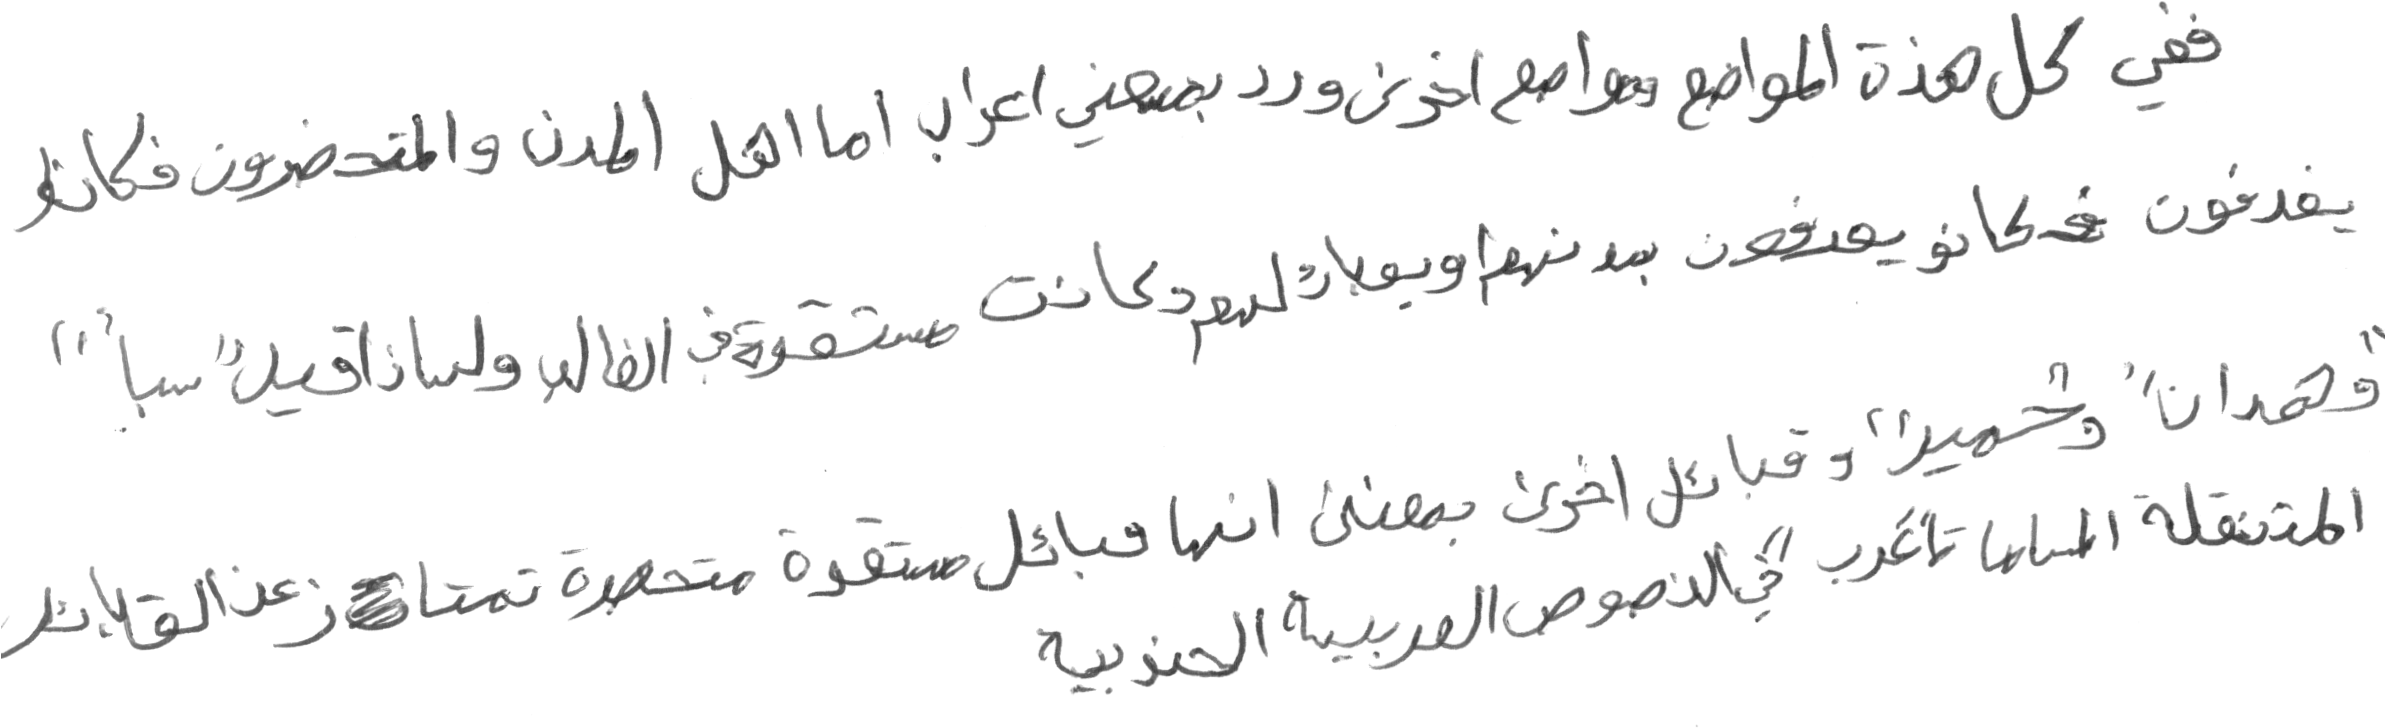 ففي كل هذة المواضع ومواضع اخرى ورد بمعني اعراب اما اهل المدن والمتحضرون فكانوا
يفدعون فكانو يعرفون بمدنهم او بقبائلهم وكانت مستقرة في الغالب ولهذا قيل "سبأ"
"وهمدان" و"حمير" وقبائل اخرى بمعنى انها قبائل مستقرة متحضرة تمتاز عن القبائل
المتنقلة المسماه "أعرب" في النصوص العربية الجنوبية